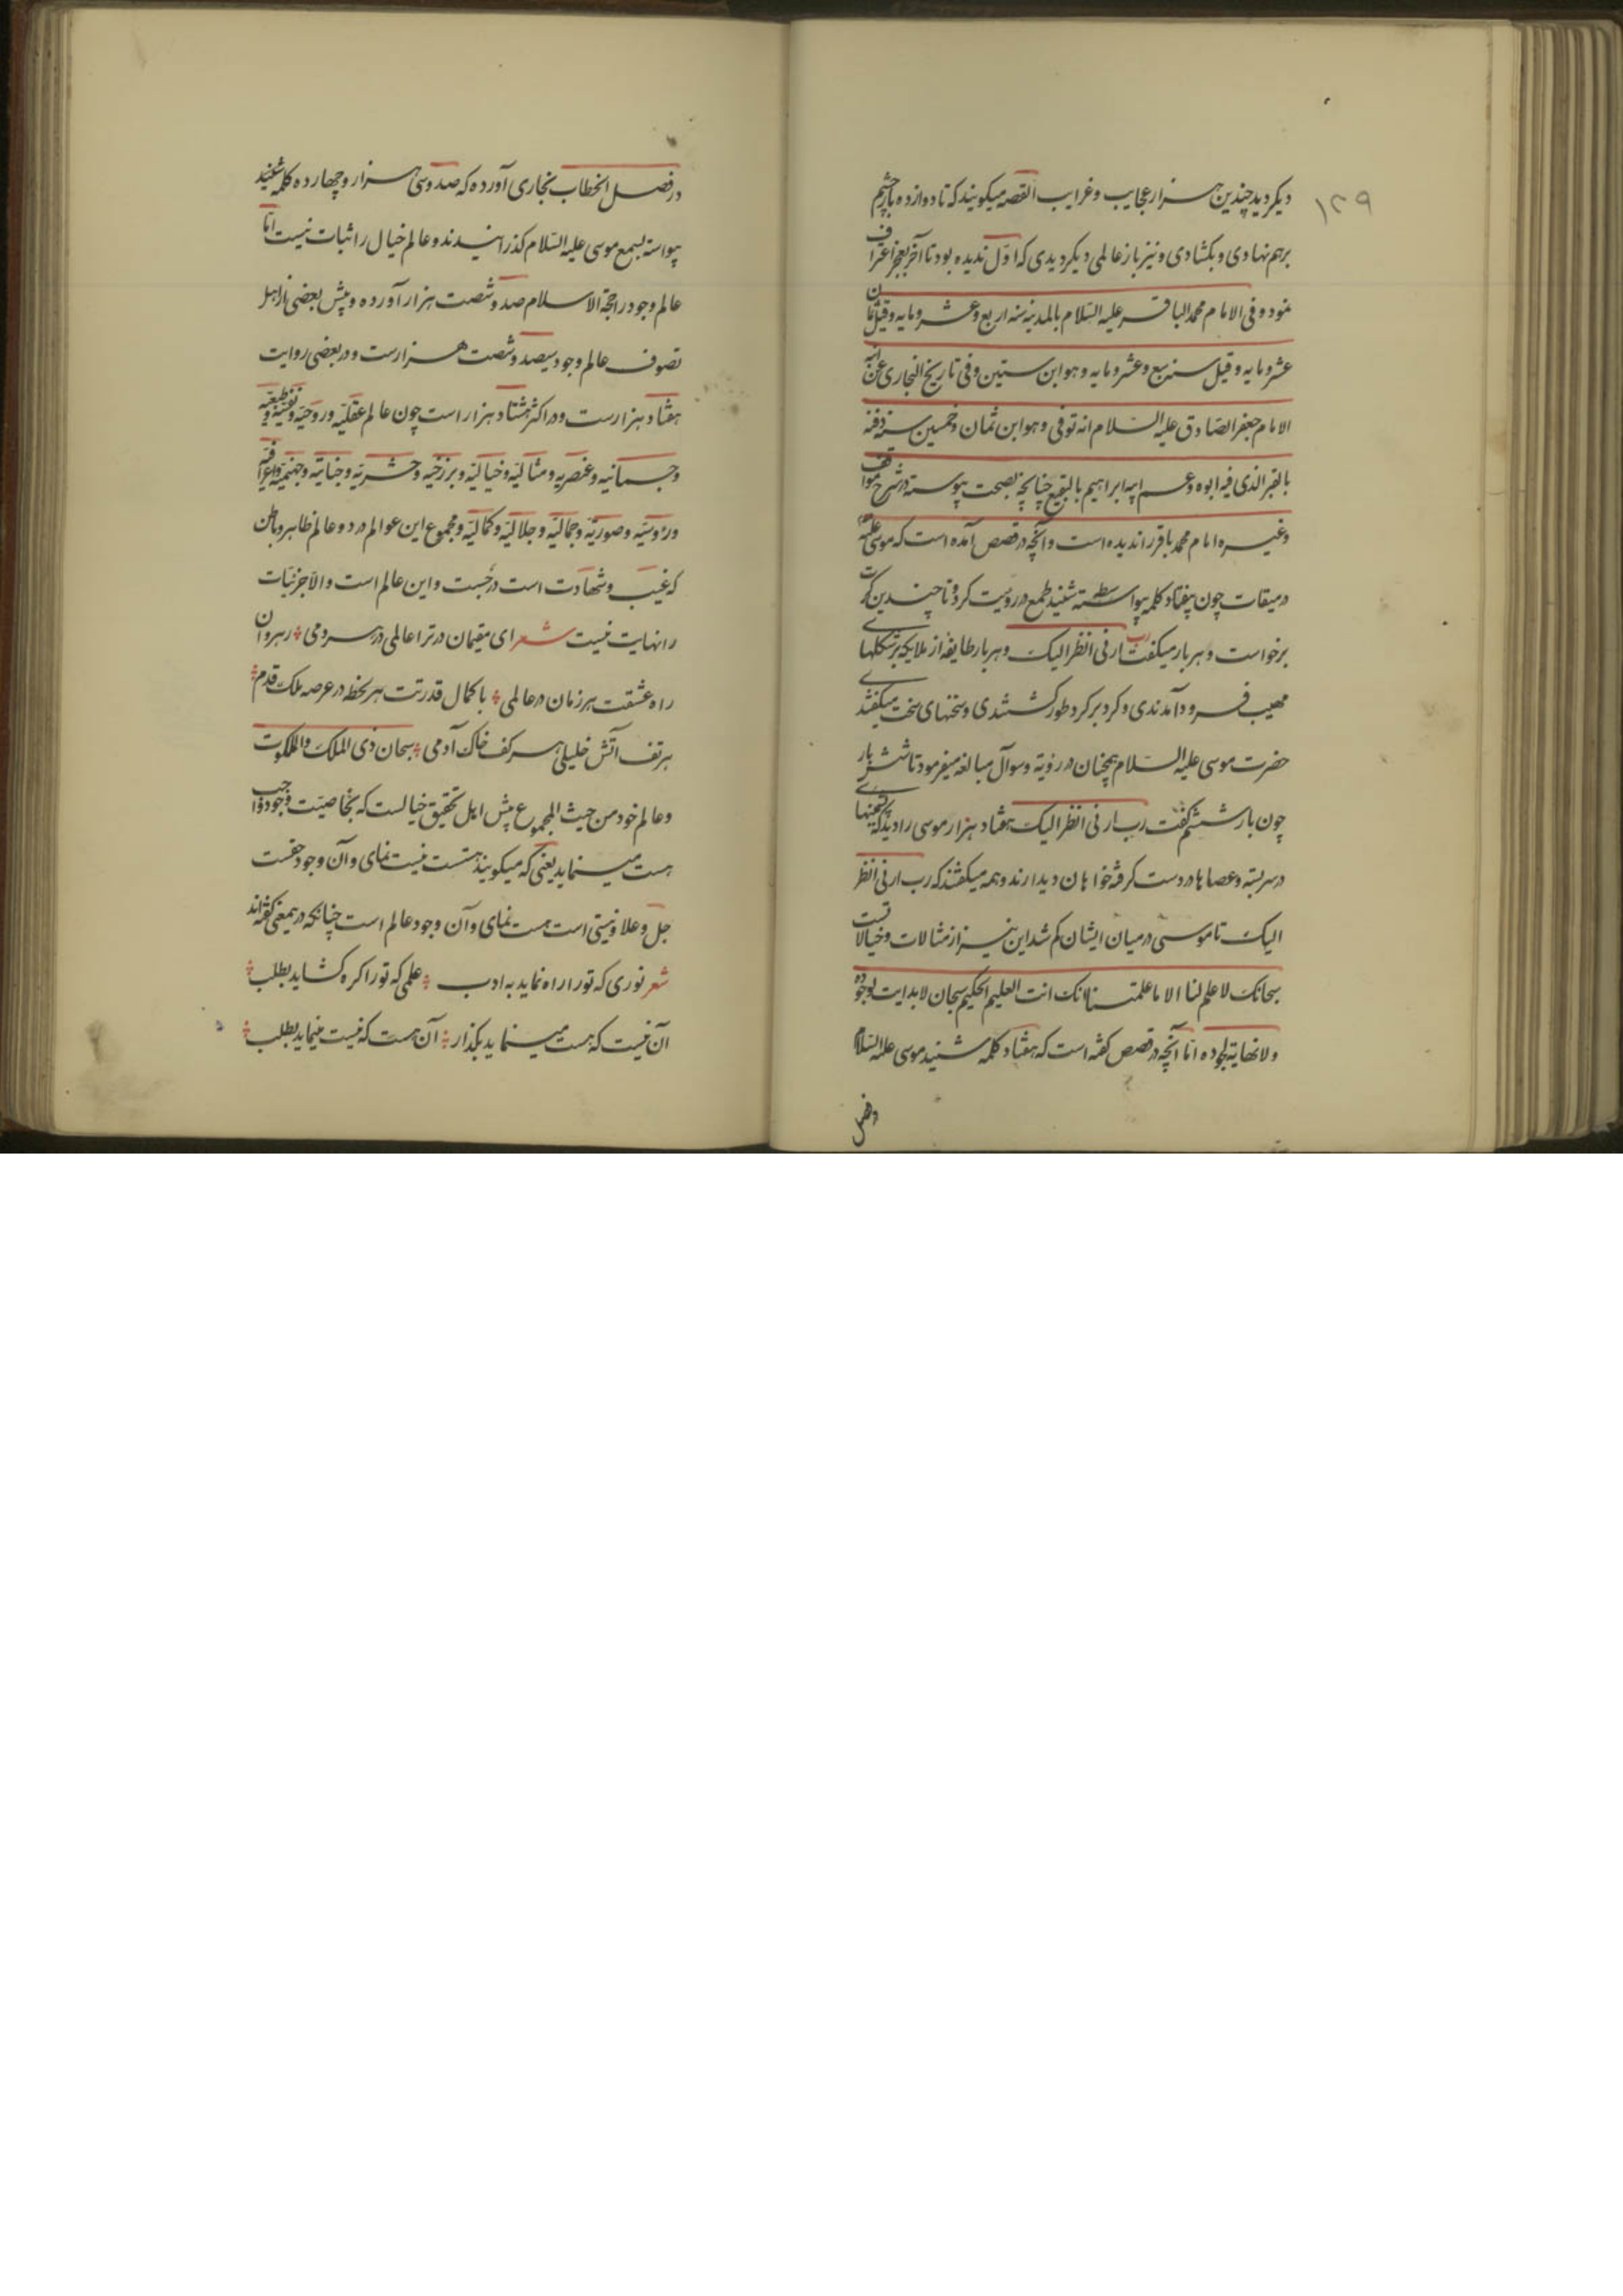 ۱۲۹
دیکر دید چندین هزار عجایب و غرایب القصه میکویند که تا دوازده بار چشم
برهم نهادی و بکشادی و نیز باز عالمی دیکر دیدی که اول ندیده بود تا آخر بعجز اعتراف
نمود و فی الامام محمد الباقر علیه السلام بالمدینه سنه اربع و عشر و مایه و قیل ثمان
عشر و مایه و قیل سنه سبع و عشر و مایه و هو ابن ستین و فی تاریخ البخاری عن ابنه
الامام جعفر الصادق علیه السلام انه توفی و هو ابن ثمان و خمسین سنه دفنه
بالقبر الذی فیه ابوه و عم ابیه ابراهیم بالبقیع چنانچه بصحت پیوسته در شرح مواقف
و غیره امام محمد باقر را ندیده است و آنچه در قصص آمده است که موسی علیه
در میقات چون هفتاد کلمه بیواسطه شنید طمع در رویت کرد و تا چندین کرت
برخواست و هر بار میکفت رب ارنی انظر الیک و هر بار طایفه از ملایکه بر شکلهای
مهیب فرود آمدندی و کرد بر کرد طور کشتندی و سخنهای سخت میکفتندی
حضرت موسی علیه السلام همچنان در رؤیة و سوآل مبالغه میفرمود تا شش بار
چون بار ششم کفت رب ارنی انظر الیک هفتاد هزار موسی را دید که
در سر بسته و عصاها در دست کرفته خواهان دیدارند و همه میکفتند که رب ارنی انظر
الیک تا موسی در میان ایشان کم شد این نیز از مثالات و خیالاتست
سبحانک لا علم لنا الا ما علمتنا انک انت العلیم الحکیم سبحان لا بدایت لوجوده
و لا نهایة لجوده اما آنچه در قصص کفته است که هفتاد کلمه شنید موسی علیه السلام
در فصل
در فصل الخطاب بخاری آورده که صد و سی هزار و چهارده کلمه شنید
پیواسته بسمع موسی علیه السلام کذرانیدند و عالم خیال را ثبات نیست اما
عالم وجود را حجة الاسلام صد و شصت هزار آورده و پیش بعضی از اهل
تصوف عالم وجود سیصد و شصت هزارست و در بعضی روایت
هفتاد هزارست و در اکثر هشتاد هزار است چون عالم عقلیّه و روحیّه و نفسیّه و طبیعیّه
و جسمانیه و عنصریه و مثالیّه و خیالیّه و برزخیه و حشریّه و جنانیّه و جهنمیّه و اعرافیّه
و رؤیتیّه و صوریّه و جمالیّه و جلالیّه و کمالیّه و مجموع این عوالم در دو عالم ظاهر و باطن
که غیب و شهادت است درجست و این عالم است و الا جزئیات
را نهایت نیست شعر ای مقیمان درت را عالمی در هر دمی رهروان
راه عشقت هر زمان در عالمی با کمال قدرتت هر لحظه در عرصه ملک قدم
هر تف آتش خلیلی هر کف خاک آدمی سبحان ذی الملک و الملکوت
و عالم خود من حیث المجموع پیش اهل تحقیق خیالست که بخاصیت وجود واجب
هست مینماید یعنی که میکویند هستست نیست نمای و آن وجود حقست
جل و علا و نیستی است هست نمای و آن وجود عالم است چنانکه در بمعنی کفته‌اند
شعر نوری که تورا راه نماید به ادب علمی که تورا کره کشاید بطلب
آن نیست که هست مینماید بکذار آن هست که نیست مینماید بطلب